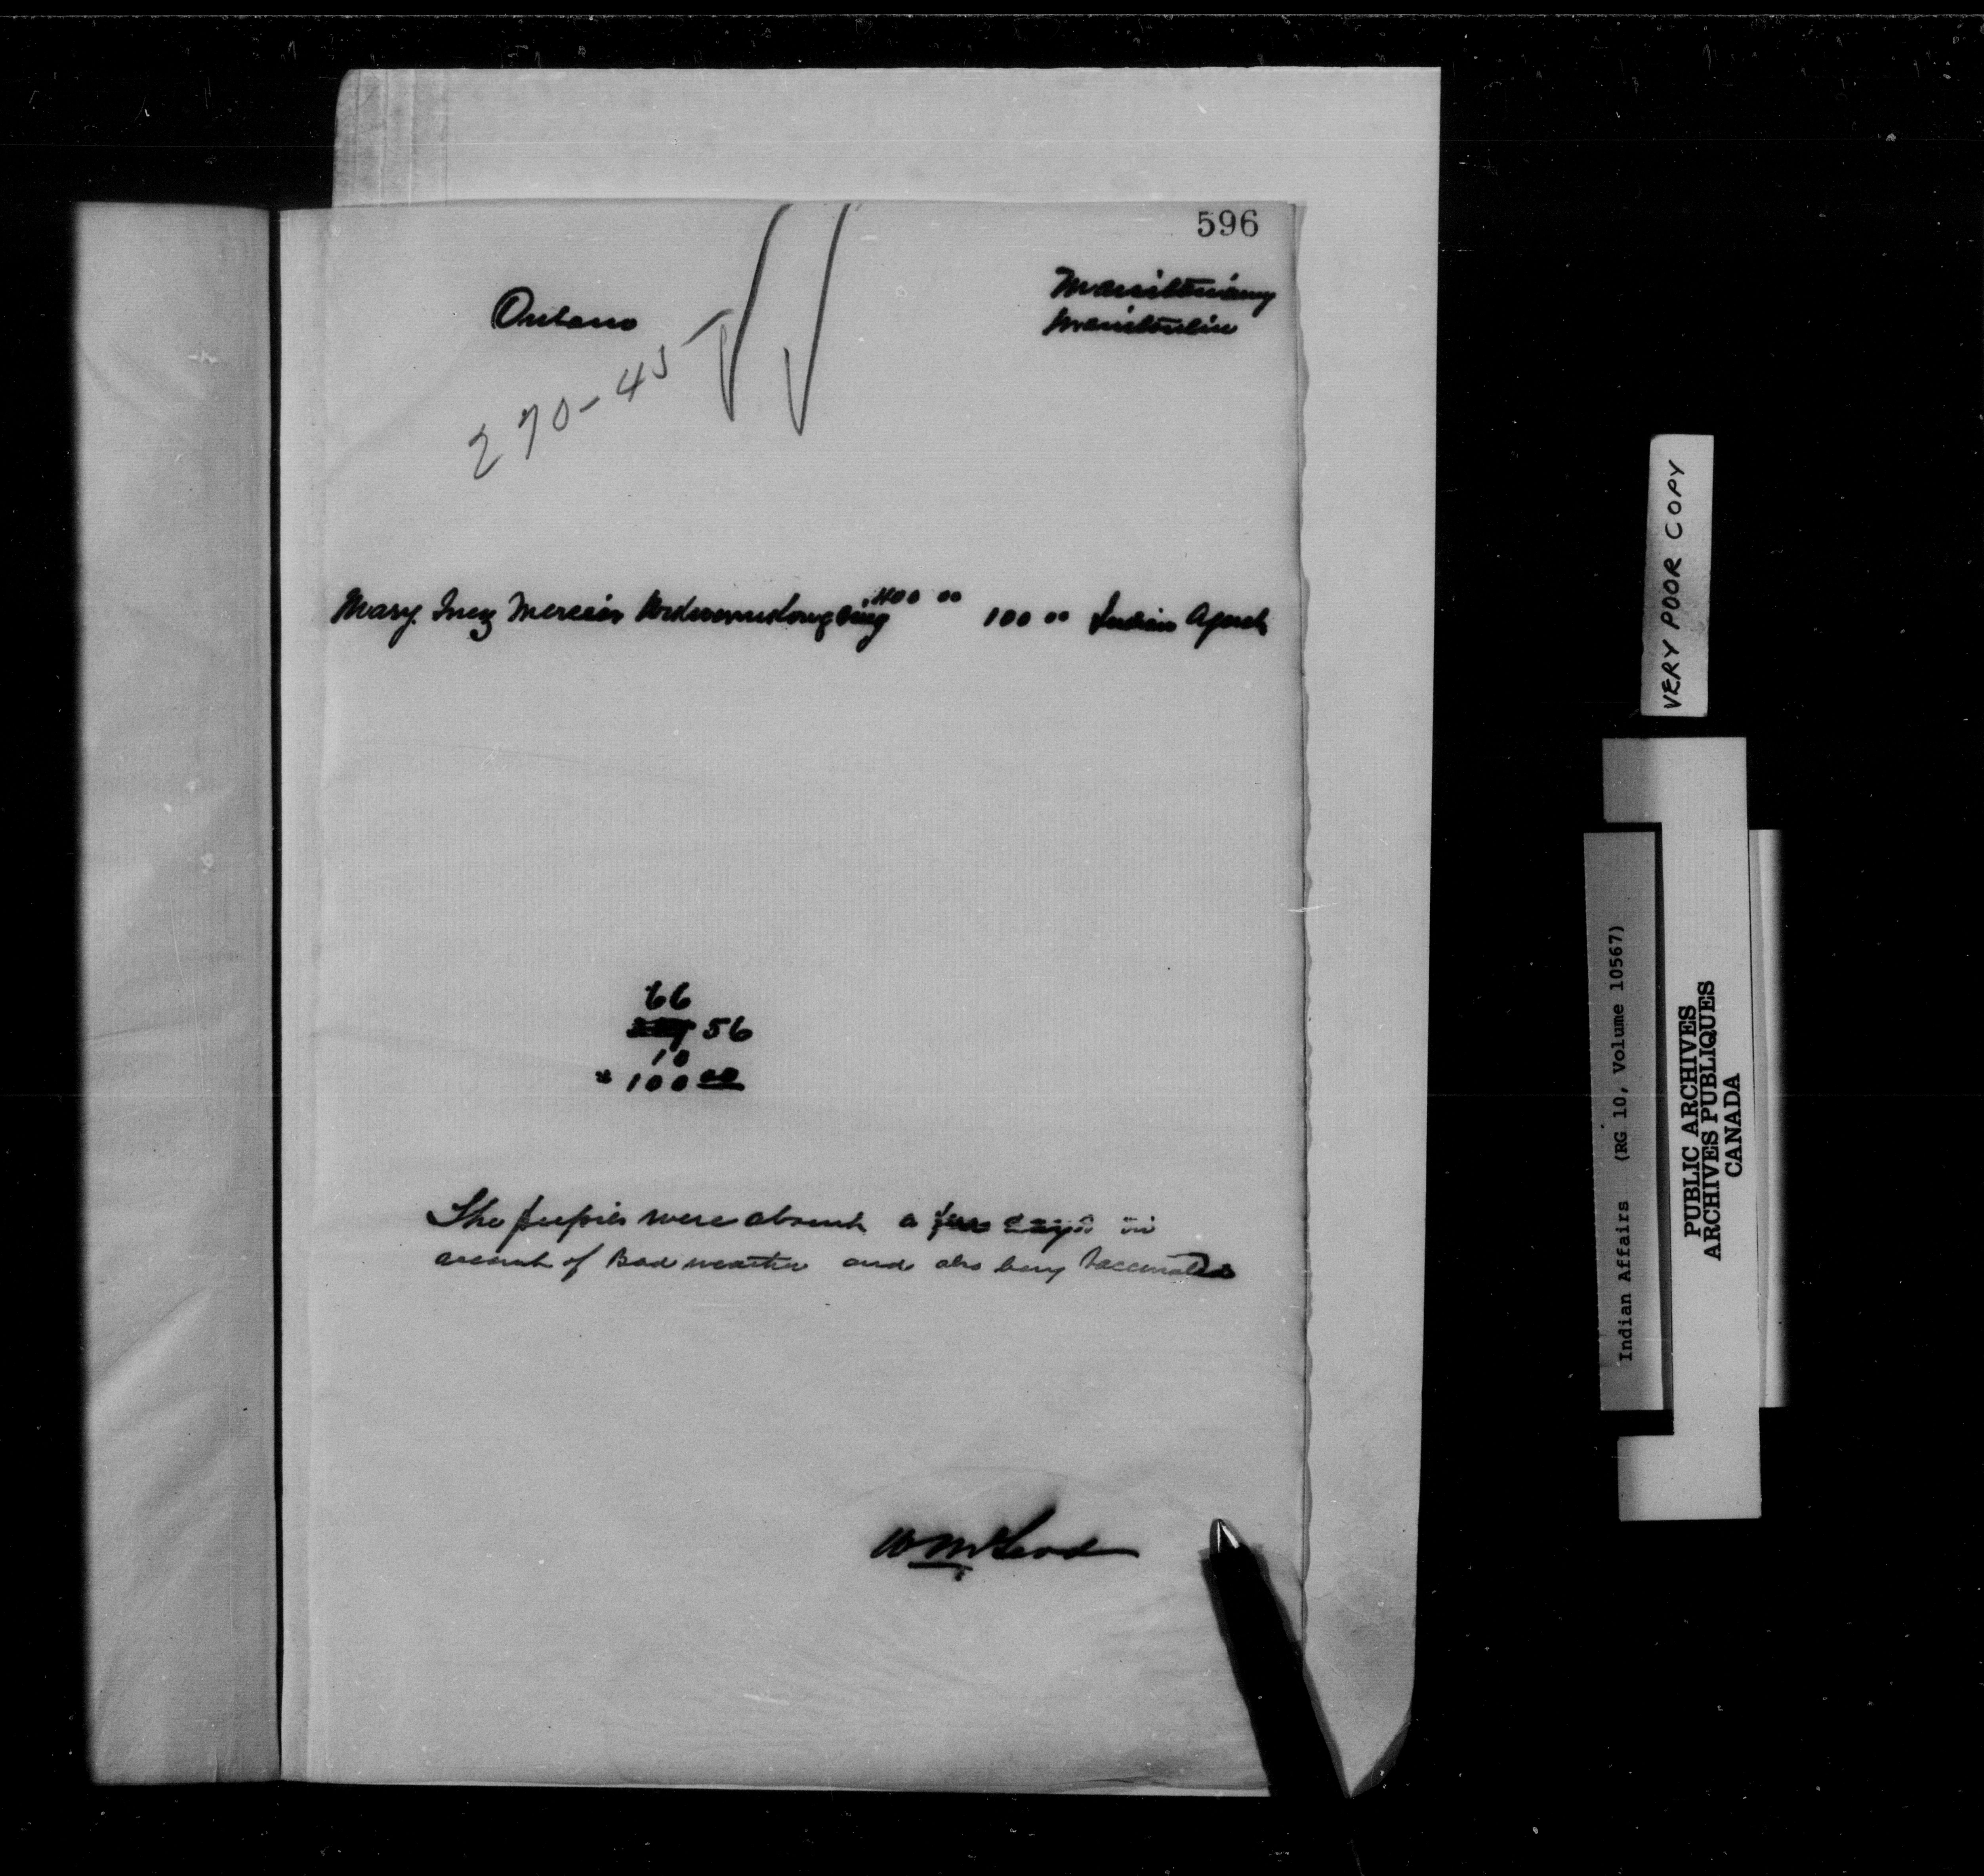 596
Ontario
Manitowaning
Manitoulin
270-45
Mary Inez Mercier 400 00 100 00 Indian Agent
66
56
10
100 00
The pupils were absent a few days on
account of Bad weather and also being vaccinated
W McLeod
VERY POOR COPY
Indian Affairs (RG 10, Volume 10567)
PUBLIC ARCHIVES
ARCHIVES PUBLIQUES
CANADA